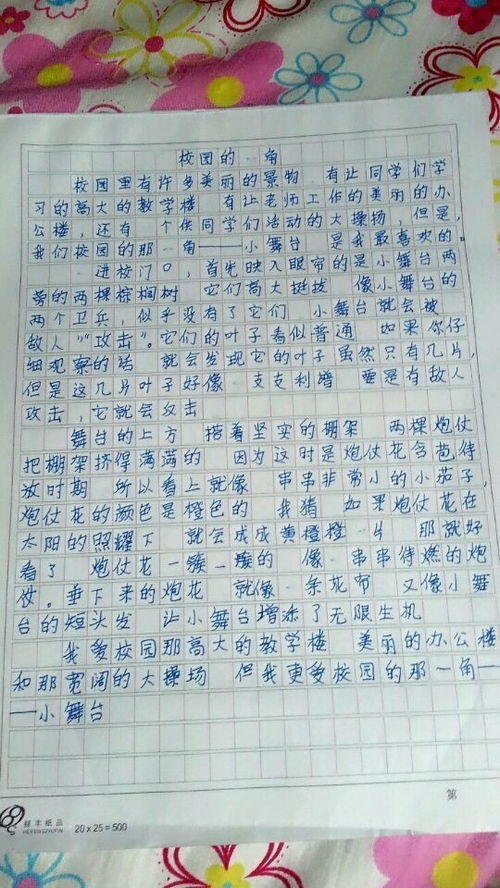 校园的 一 角
校园里有许多美丽的景物 有让同学们学
习的高大的教学楼 有让老师工作的美丽的办
公楼，还有 个供同学们活动的大操扬，但是，
我们校园的那一角——小舞台 是我最喜欢的。
进校门口，首先映入眼帘的是小舞台两
旁的两棵棕榈树 它们高大挺拔 像小舞台的
两个卫兵，似乎没有了它们 小舞台就会被
敌人“攻击”。它们的叶子看似普通 如果你仔
细观察的话 就会发现它的叶子虽然只有几片，
但是这几片叶子好像 支支利 要是有敌人
攻击，它就会反击
舞台的上方 搭着坚实的棚架 两棵炮仗
把棚架挤得满满的 因为这时是炮仗花含苞待
放时期 所以看上就像 串串非常小的小茄子，
炮仗花的颜色是橙色的 我猜 如果炮仗花在
太阳的照耀下 就会成成黄橙橙一片 那就好
看了 炮仗花一簇一簇的 像一串串待燃的炮
仗。垂下来的炮花 就像一条花布 又像小舞
台的短头发 让小舞台增添了无限生机
我爱校园那高大的教学楼 美丽的办公楼
和那宽阔的大操场 但我更爱校园的那一角—
—小舞台
第
20 x 25 = 500